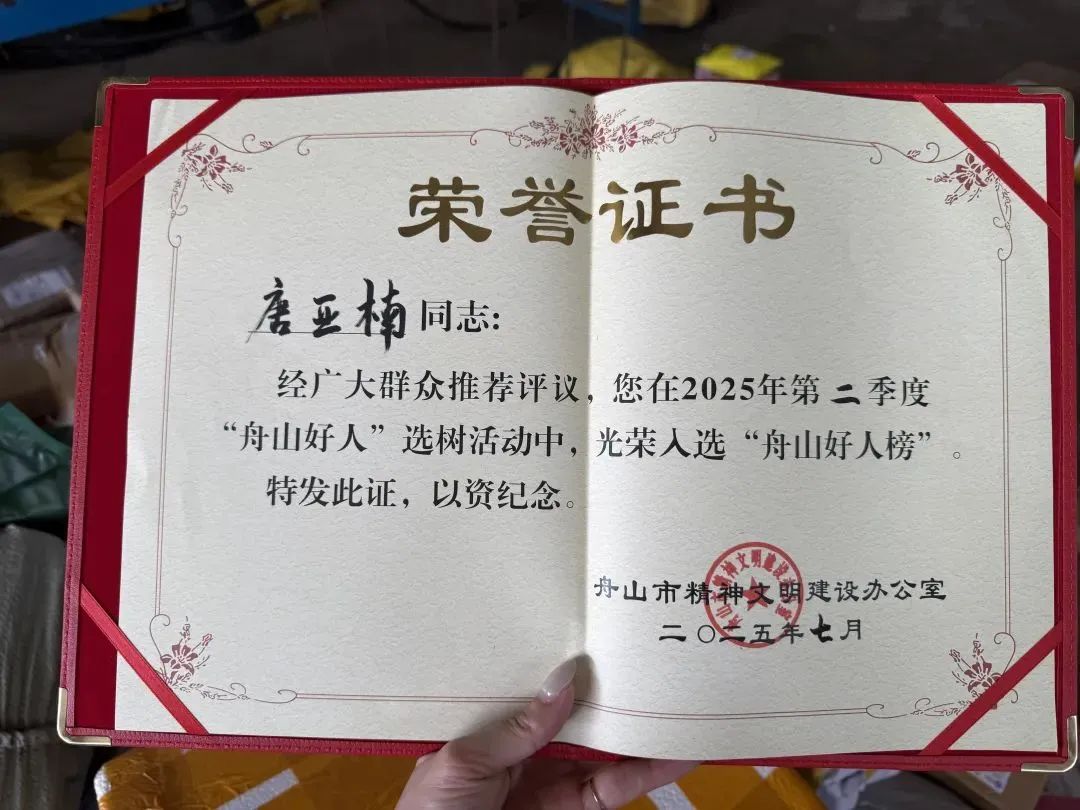 荣誉证书
唐亚楠同志:
经广大群众推荐评议，您在2025年第二季度
“舟山好人”选树活动中，光荣入选“舟山好人榜”。
特发此证，以资纪念。
舟山市精神文明建设办公室
二〇二五年七月